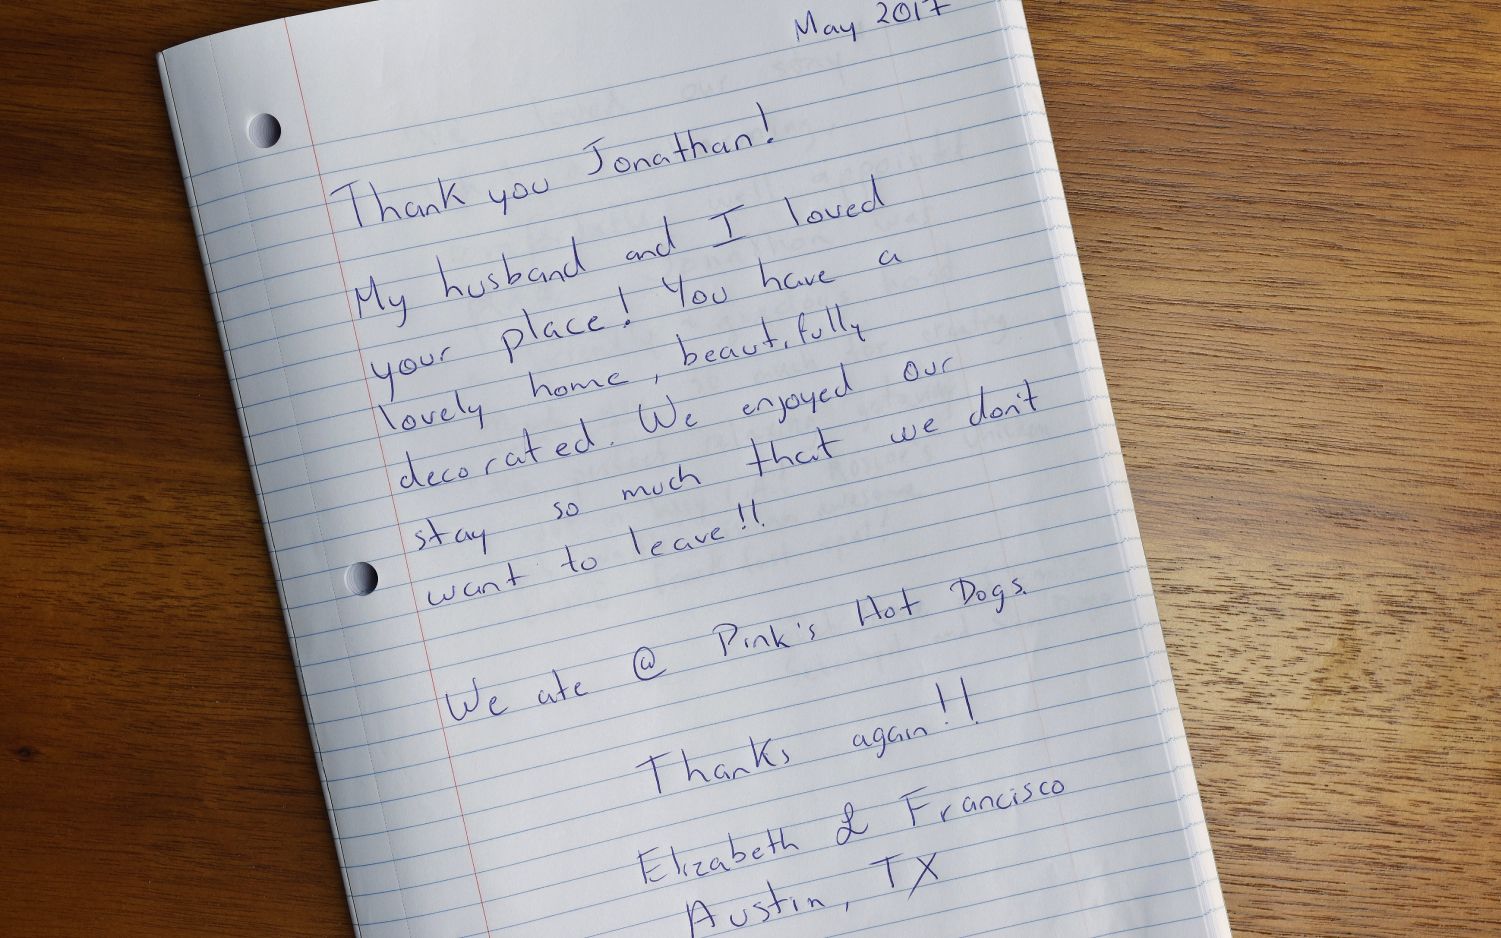 May 2017
Thank you Jonathan!
My husband and I loved
your place! You have a
lovely home, beautifully
decorated. We enjoyed our
stay so much that we don't
want to leave!!
We ate @ Pink's Hot Dogs.
Thanks again!!
Elizabeth & Francisco
Austin, TX